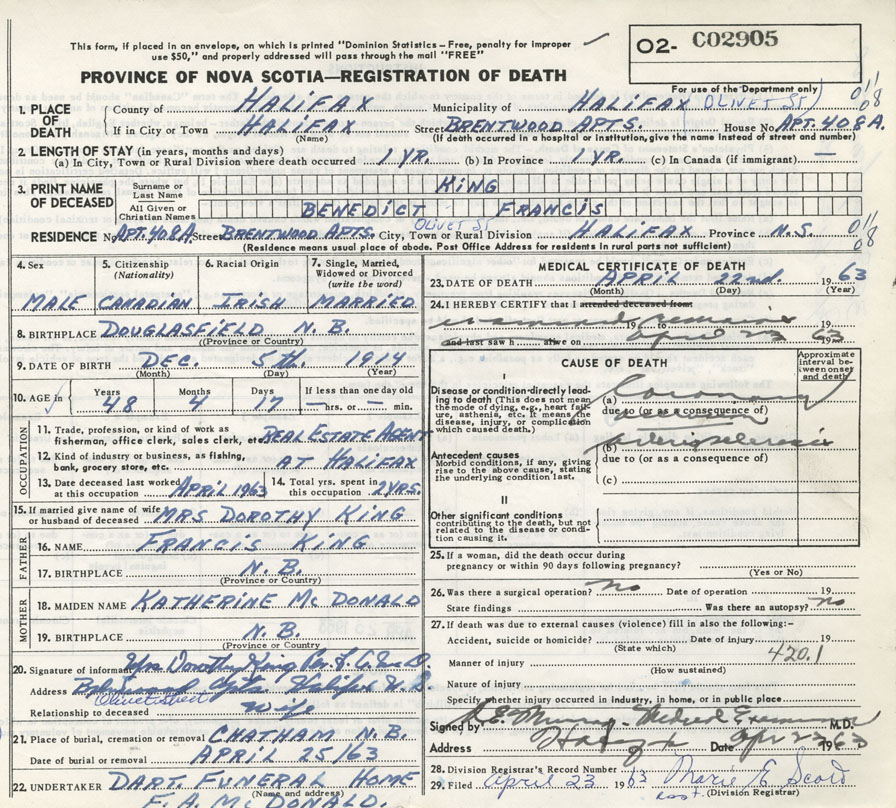 This form, if placed in an envelope, on which is printed "Dominion Statistics - Free, penalty for improper
use $50," and properly addressed will pass through the mail "FREE"
O2- CO2905
PROVINCE OF NOVA SCOTIA—REGISTRATION OF DEATH
For use of the Department only
1. PLACE OF DEATH County of HALIFAX Municipality of HALIFAX OLIVET ST 011 08
If in City or Town HALIFAX Street BRENTWOOD APTS. House No. APT. 408A.
(Name) (If death occurred in a hospital or institution, give the name instead of street and number)
2. LENGTH OF STAY (in years, months and days)
(a) In City, Town or Rural Division where death occurred 1 YR. (b) In Province 1 YR. (c) In Canada (if immigrant) —
3. PRINT NAME OF DECEASED Surname or Last Name KING
All Given or Christian Names BENEDICT FRANCIS
RESIDENCE No. APT. 408A Street BRENTWOOD APTS. OLIVET ST City, Town or Rural Division HALIFAX Province N.S. 011 08
(Residence means usual place of abode. Post Office Address for residents in rural parts not sufficient)
4. Sex MALE
5. Citizenship (Nationality) CANADIAN
6. Racial Origin IRISH
7. Single, Married, Widowed or Divorced (write the word) MARRIED
8. BIRTHPLACE DOUGLASFIELD N.B.
(Province or Country)
9. DATE OF BIRTH DEC. 5th. 1914
(Month) (Day) (Year)
10. AGE in Years 48 Months 4 Days 17 If less than one day old — hrs. or — min.
OCCUPATION
11. Trade, profession, or kind of work as fisherman, office clerk, sales clerk, etc. REAL ESTATE AGENT
12. Kind of industry or business, as fishing, bank, grocery store, etc. AT HALIFAX
13. Date deceased last worked at this occupation APRIL 1963
14. Total yrs. spent in this occupation 2 YRS.
15. If married give name of wife or husband of deceased MRS DOROTHY KING
FATHER
16. NAME FRANCIS KING
17. BIRTHPLACE N.B.
(Province or Country)
MOTHER
18. MAIDEN NAME KATHERINE McDONALD
19. BIRTHPLACE N.B.
(Province or Country)
20. Signature of informant Mrs Dorothy King Per
Address Apts. Halifax N.S.
Olivet Street
Relationship to deceased Wife
21. Place of burial, cremation or removal CHATHAM N.B.
Date of burial or removal APRIL 25/63
22. UNDERTAKER DART. FUNERAL HOME
(Name and address)
F. A. McDONALD.
MEDICAL CERTIFICATE OF DEATH
23. DATE OF DEATH APRIL 22nd. 1963
(Month) (Day) (Year)
24. I HEREBY CERTIFY that I attended deceased from
examined remains 19 to
and last saw h alive on April 23 63
CAUSE OF DEATH
Approximate interval between onset and death
I
Disease or condition directly leading to death (This does not mean the mode of dying, e.g., heart failure, asthenia, etc. It means the disease, injury, or complication which caused death.)
(a) Coronary
due to (or as a consequence of)
Antecedent causes
Morbid conditions, if any, giving rise to the above cause, stating the underlying condition last.
(b) arteriosclerosis
due to (or as a consequence of)
(c)
II
Other significant conditions contributing to the death, but not related to the disease or condition causing it.
25. If a woman, did the death occur during pregnancy or within 90 days following pregnancy?
(Yes or No)
26. Was there a surgical operation? no Date of operation 19
State findings Was there an autopsy? no
27. If death was due to external causes (violence) fill in also the following:-
Accident, suicide or homicide? Date of injury 19
(State which)
420.1
Manner of injury
(How sustained)
Nature of injury
Specify whether injury occurred in industry, in home, or in public place
Signed by Murray - Medical Examiner M.D.
Address Halifax Date Apr 23 1963
28. Division Registrar's Record Number
29. Filed April 23 1963 Marie E
(Division Registrar)